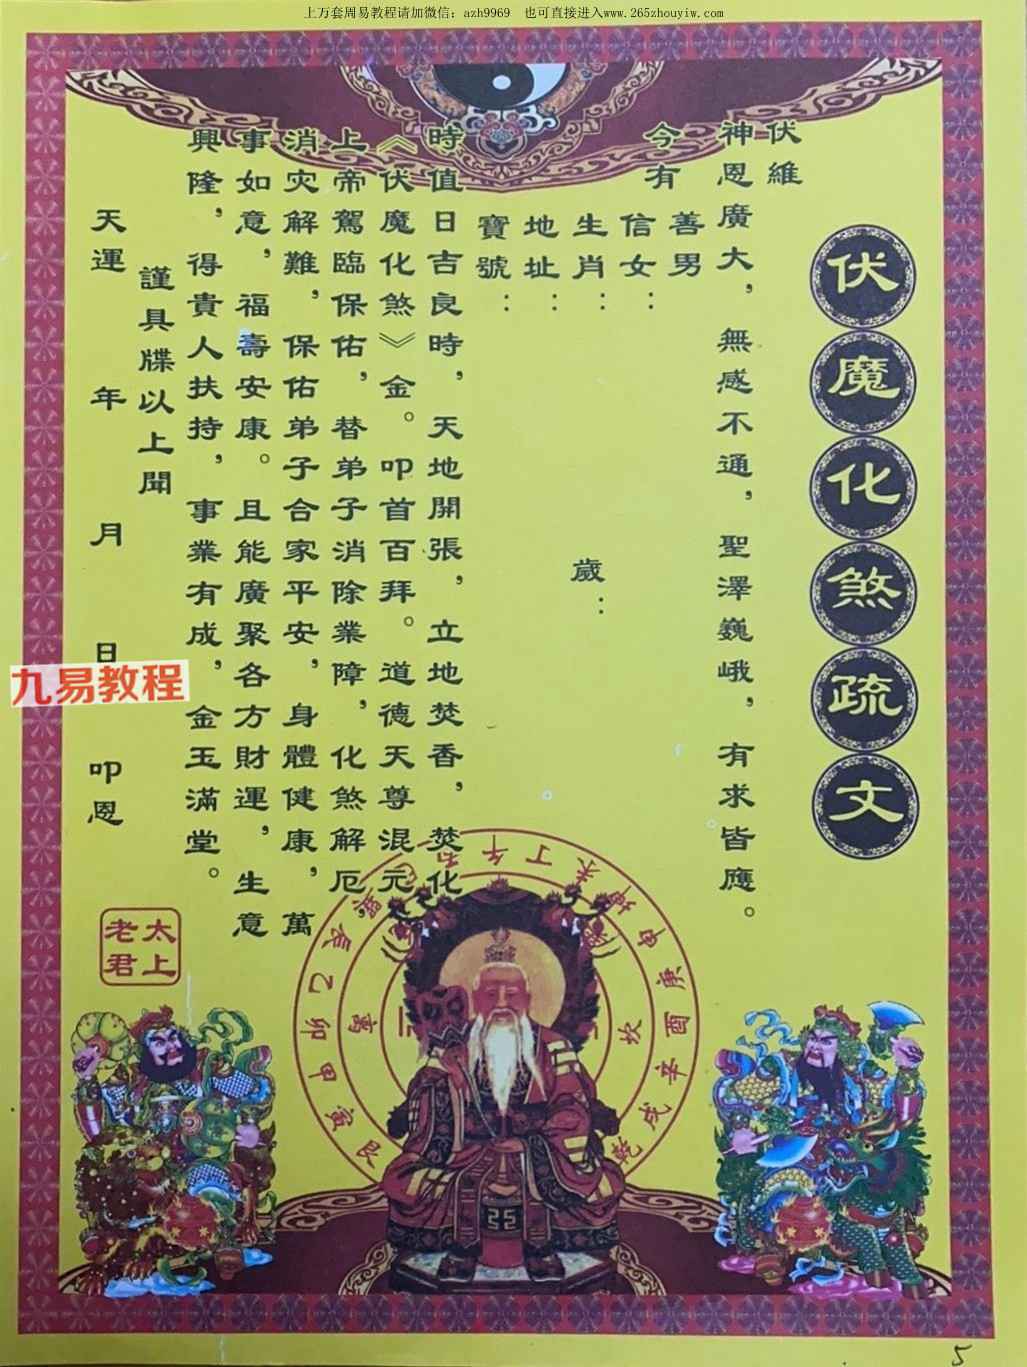 上万套周易教程请加微信：azh9969　也可直接进入www.265zhouyiw.com
伏魔化煞疏文
伏維
神恩廣大，無感不通，聖澤巍峨，有求皆應。
今有
善男
信女：
生肖：　歲：
地址：
寶號：
時值日吉良時，天地開張，立地焚香，焚化
《伏魔化煞》金。叩首百拜。道德天尊混元
上帝駕臨保佑，替弟子消除業障，化煞解厄
消灾解難，保佑弟子合家平安，身體健康，萬
事如意，福壽安康。且能廣聚各方財運，生意
興隆，得貴人扶持，事業有成，金玉滿堂。
謹具牒以上聞
天運　年　月　日　叩恩
九易教程
太上
老君
艮寅甲卯乙辰
午丁未
申庚酉辛戌乾
坎
5